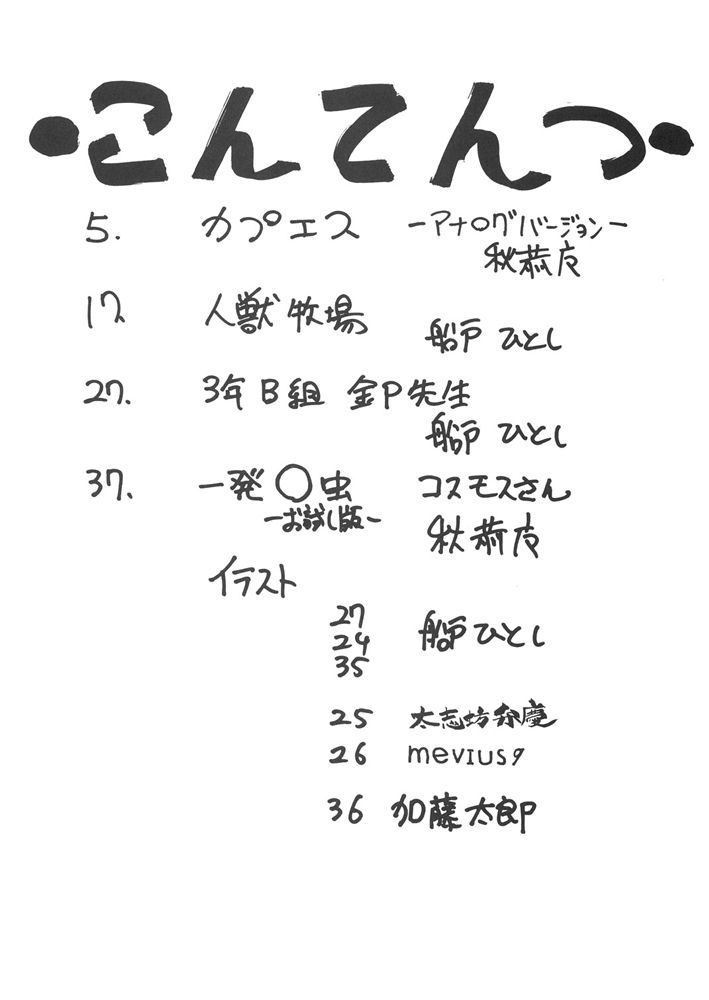 ・こんてんつ・
5. カプエス －アナログバージョン－
秋恭夜
17. 人獣牧場
船戸 ひとし
27. 3年B組 金P先生
船戸 ひとし
37. 一発〇虫 コスモスさん
－お試し版－
秋恭夜
イラスト
27
24 船戸ひとし
35
25 太志坊弁慶
26 mevius9
36 加藤太郎